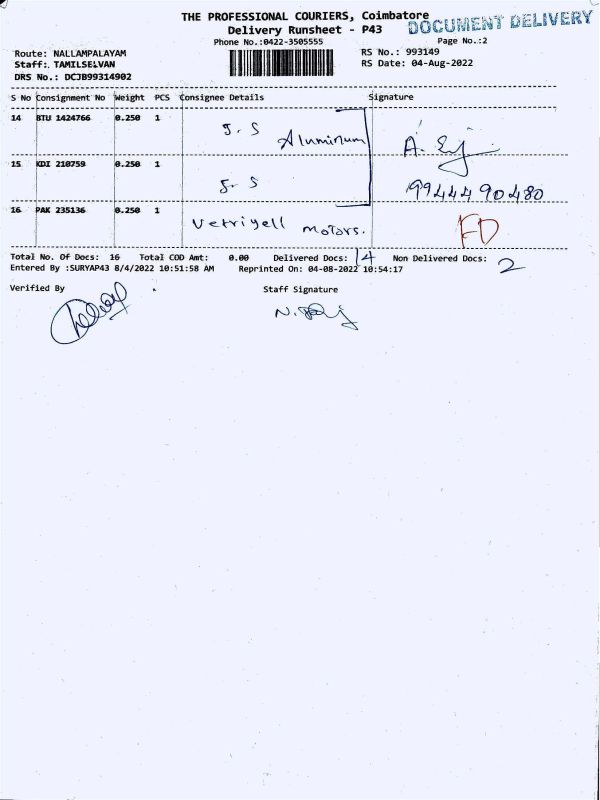 THE PROFESSIONAL COURIERS, Coimbatore
DOCUMENT DELIVERY
Delivery Runsheet - P43
Phone No.:0422-3505555
Page No.:2
Route: NALLAMPALAYAM
RS No.: 993149
Staff:. TAMILSELVAN
RS Date: 04-Aug-2022
DRS No.: DCJB99314902
S No Consignment No Weight PCS Consignee Details Signature
14 BTU 1424766 0.250 1 J. S Aluminium
15 KDI 210759 0.250 1 J. S 9944490480
16 PAK 235136 0.250 1 Vetriyell Motors. FD
Total No. Of Docs: 16 Total COD Amt: 0.00 Delivered Docs: 14 Non Delivered Docs: 2
Entered By :SURYAP43 8/4/2022 10:51:58 AM Reprinted On: 04-08-2022 10:54:17
Verified By Staff Signature